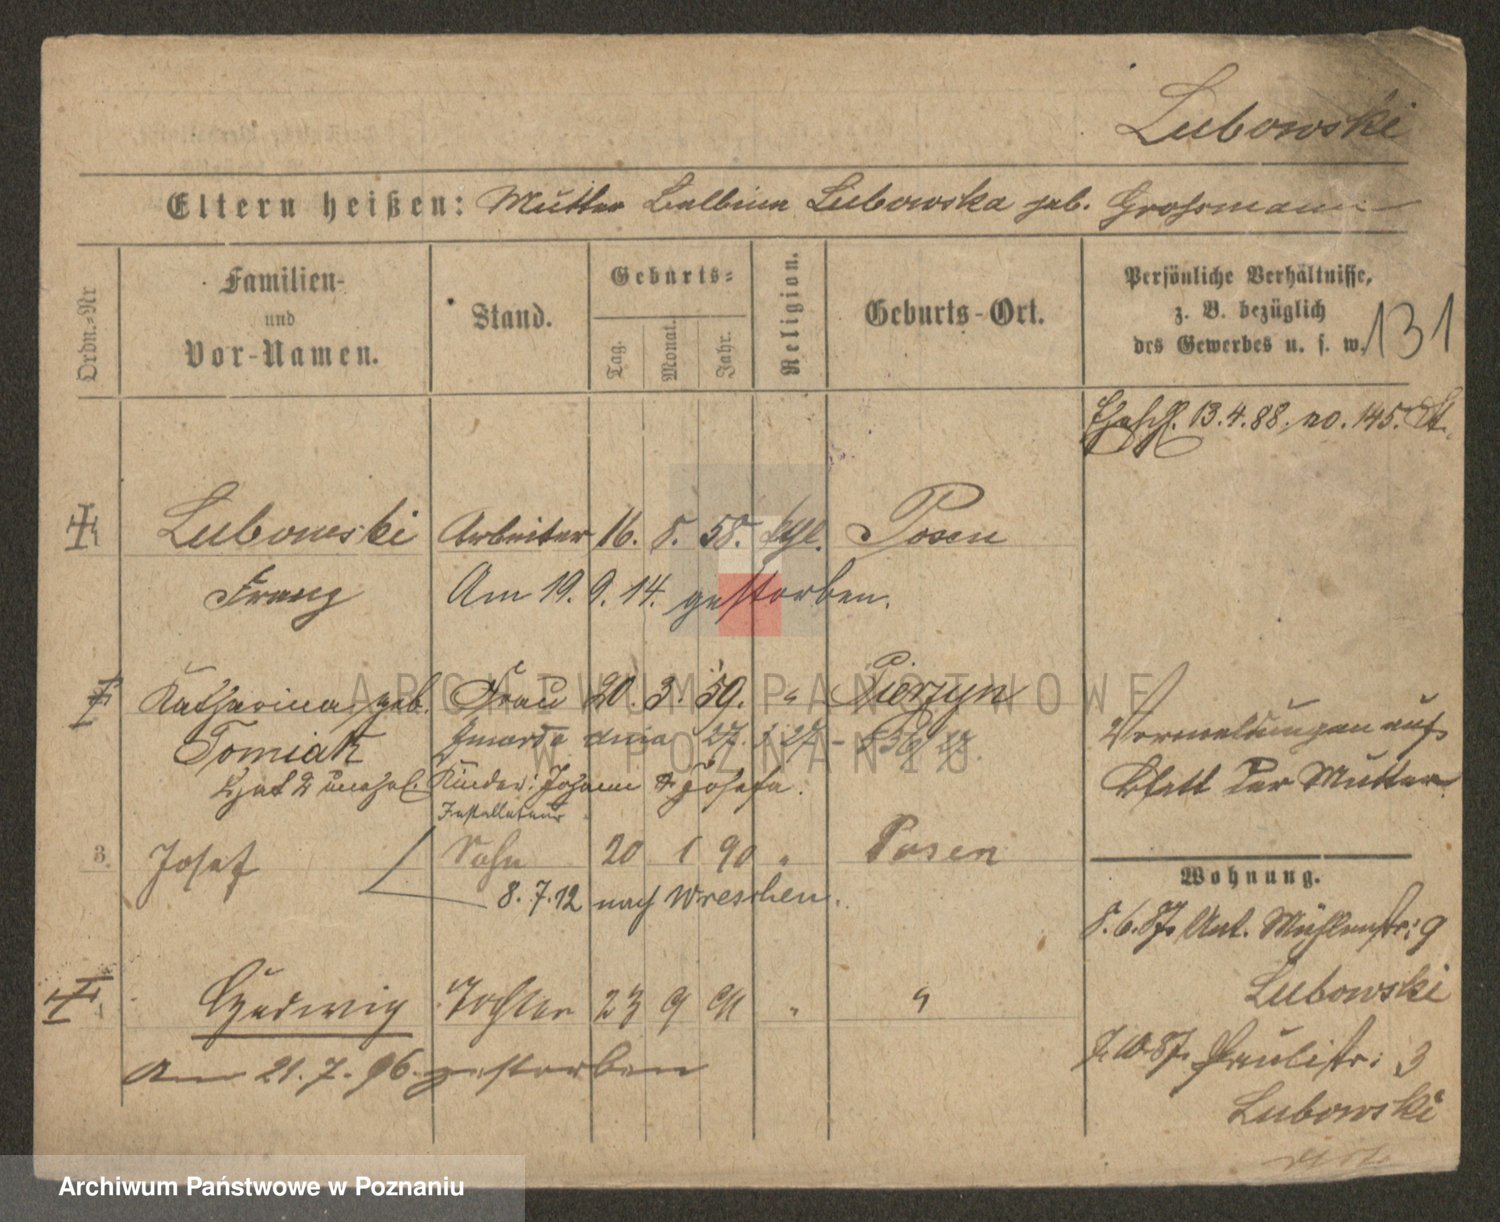 Lubowski
Eltern heißen: Mutter Balbina Lubowska geb. Grossmann
Ordn.-Nr
Familien-
und
Vor-Namen.
Stand.
Geburts-
Tag.
Monat.
Jahr.
Religion.
Geburts-Ort.
Persönliche Verhältnisse,
z. B. bezüglich
des Gewerbes u. s. w.
131
Ehesch. 13.4.88. no. 145. St.
Lubowski Arbeiter 16. 8. 58. kth. Posen
Franz Am 19. 9. 14. gestorben.
Katharina geb. Frau 20. 3. 59. " Pierzyn
Tomiak Zmarła dnia 27.
2 unehel. Kinder: Johann & Josefa.
Installateur
3. Josef Sohn 20 1 90 " Posen
8. 7. 12 nach Wreschen.
Hedwig Tochter 23 9 91 " "
Am 21. 7. 96. gestorben
Vermeldungen auf
Blatt der Mutter
Wohnung.
8. 6. 87. Unt. Mühlenstr: 9
Lubowski
7. 10. 87. Paulistr: 3
Lubowski
ARCHIWUM PAŃSTWOWE
W POZNANIU
Archiwum Państwowe w Poznaniu